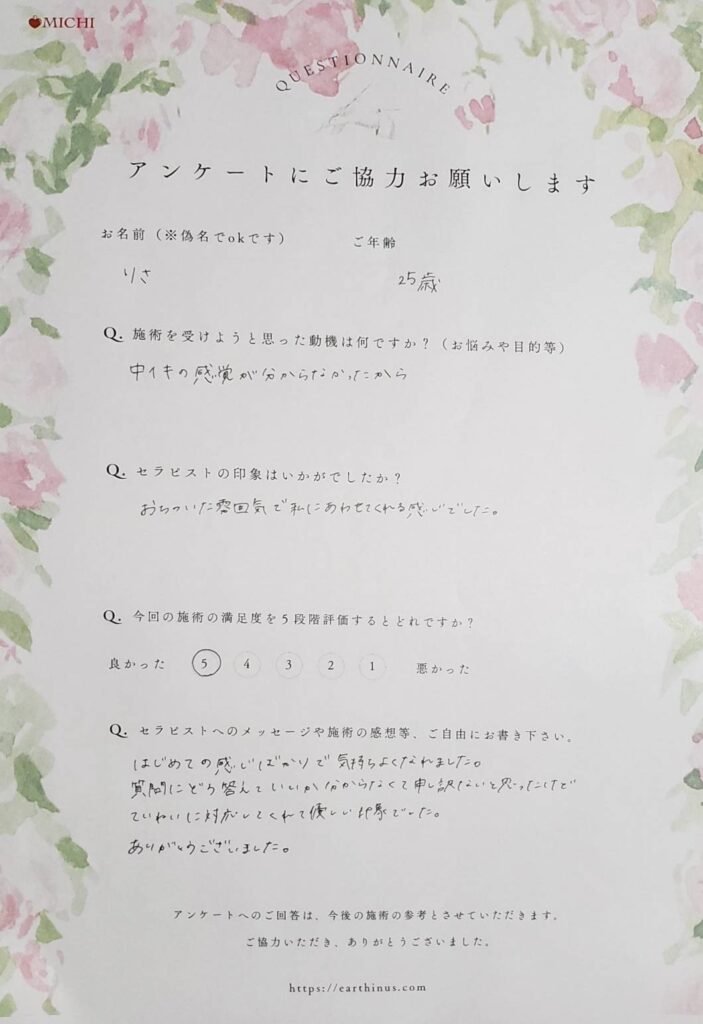 MICHI
QUESTIONNAIRE
アンケートにご協力お願いします
お名前（※偽名でokです）
ご年齢
りさ
25歳
Q. 施術を受けようと思った動機は何ですか？（お悩みや目的等）
中イキの感覚が分からなかったから
Q. セラピストの印象はいかがでしたか？
おちついた雰囲気で私にあわせてくれる感じでした。
Q. 今回の施術の満足度を5段階評価するとどれですか？
良かった 5 4 3 2 1 悪かった
Q. セラピストへのメッセージや施術の感想等、ご自由にお書き下さい。
はじめての感じばかりで気持ちよくなれました。
質問にどう答えていいか分からなくて申し訳ないと思ったけど
ていねいに対応してくれて優しい印象でした。
ありがとうございました。
アンケートへのご回答は、今後の施術の参考とさせていただきます。
ご協力いただき、ありがとうございました。
https://earthinus.com